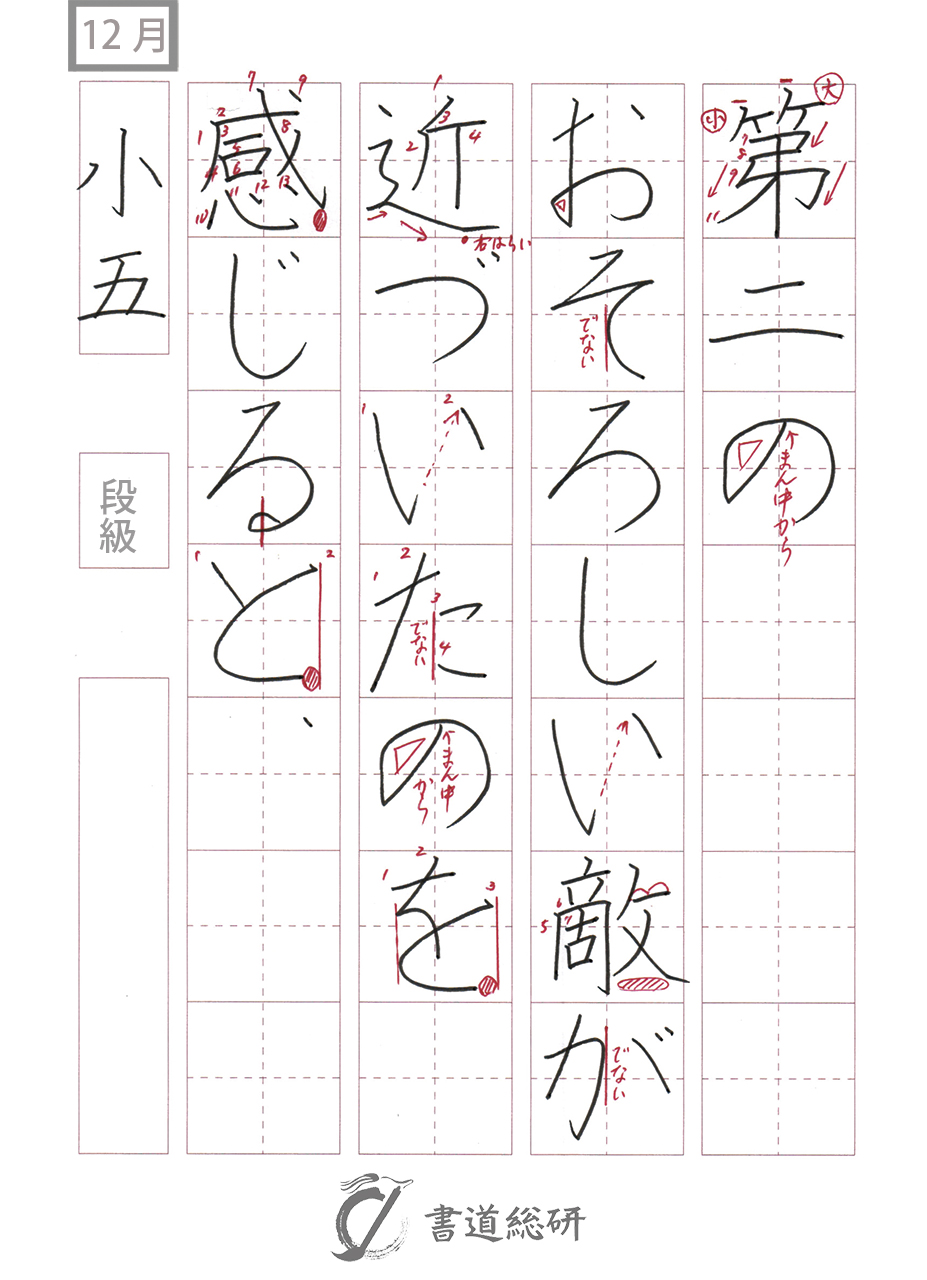 12月
第二の
大
小
まん中から
おそろしい敵が
でない
でない
近づいたのを
右はらい
でない
まん中から
感じると、
小五
段級
書道総研